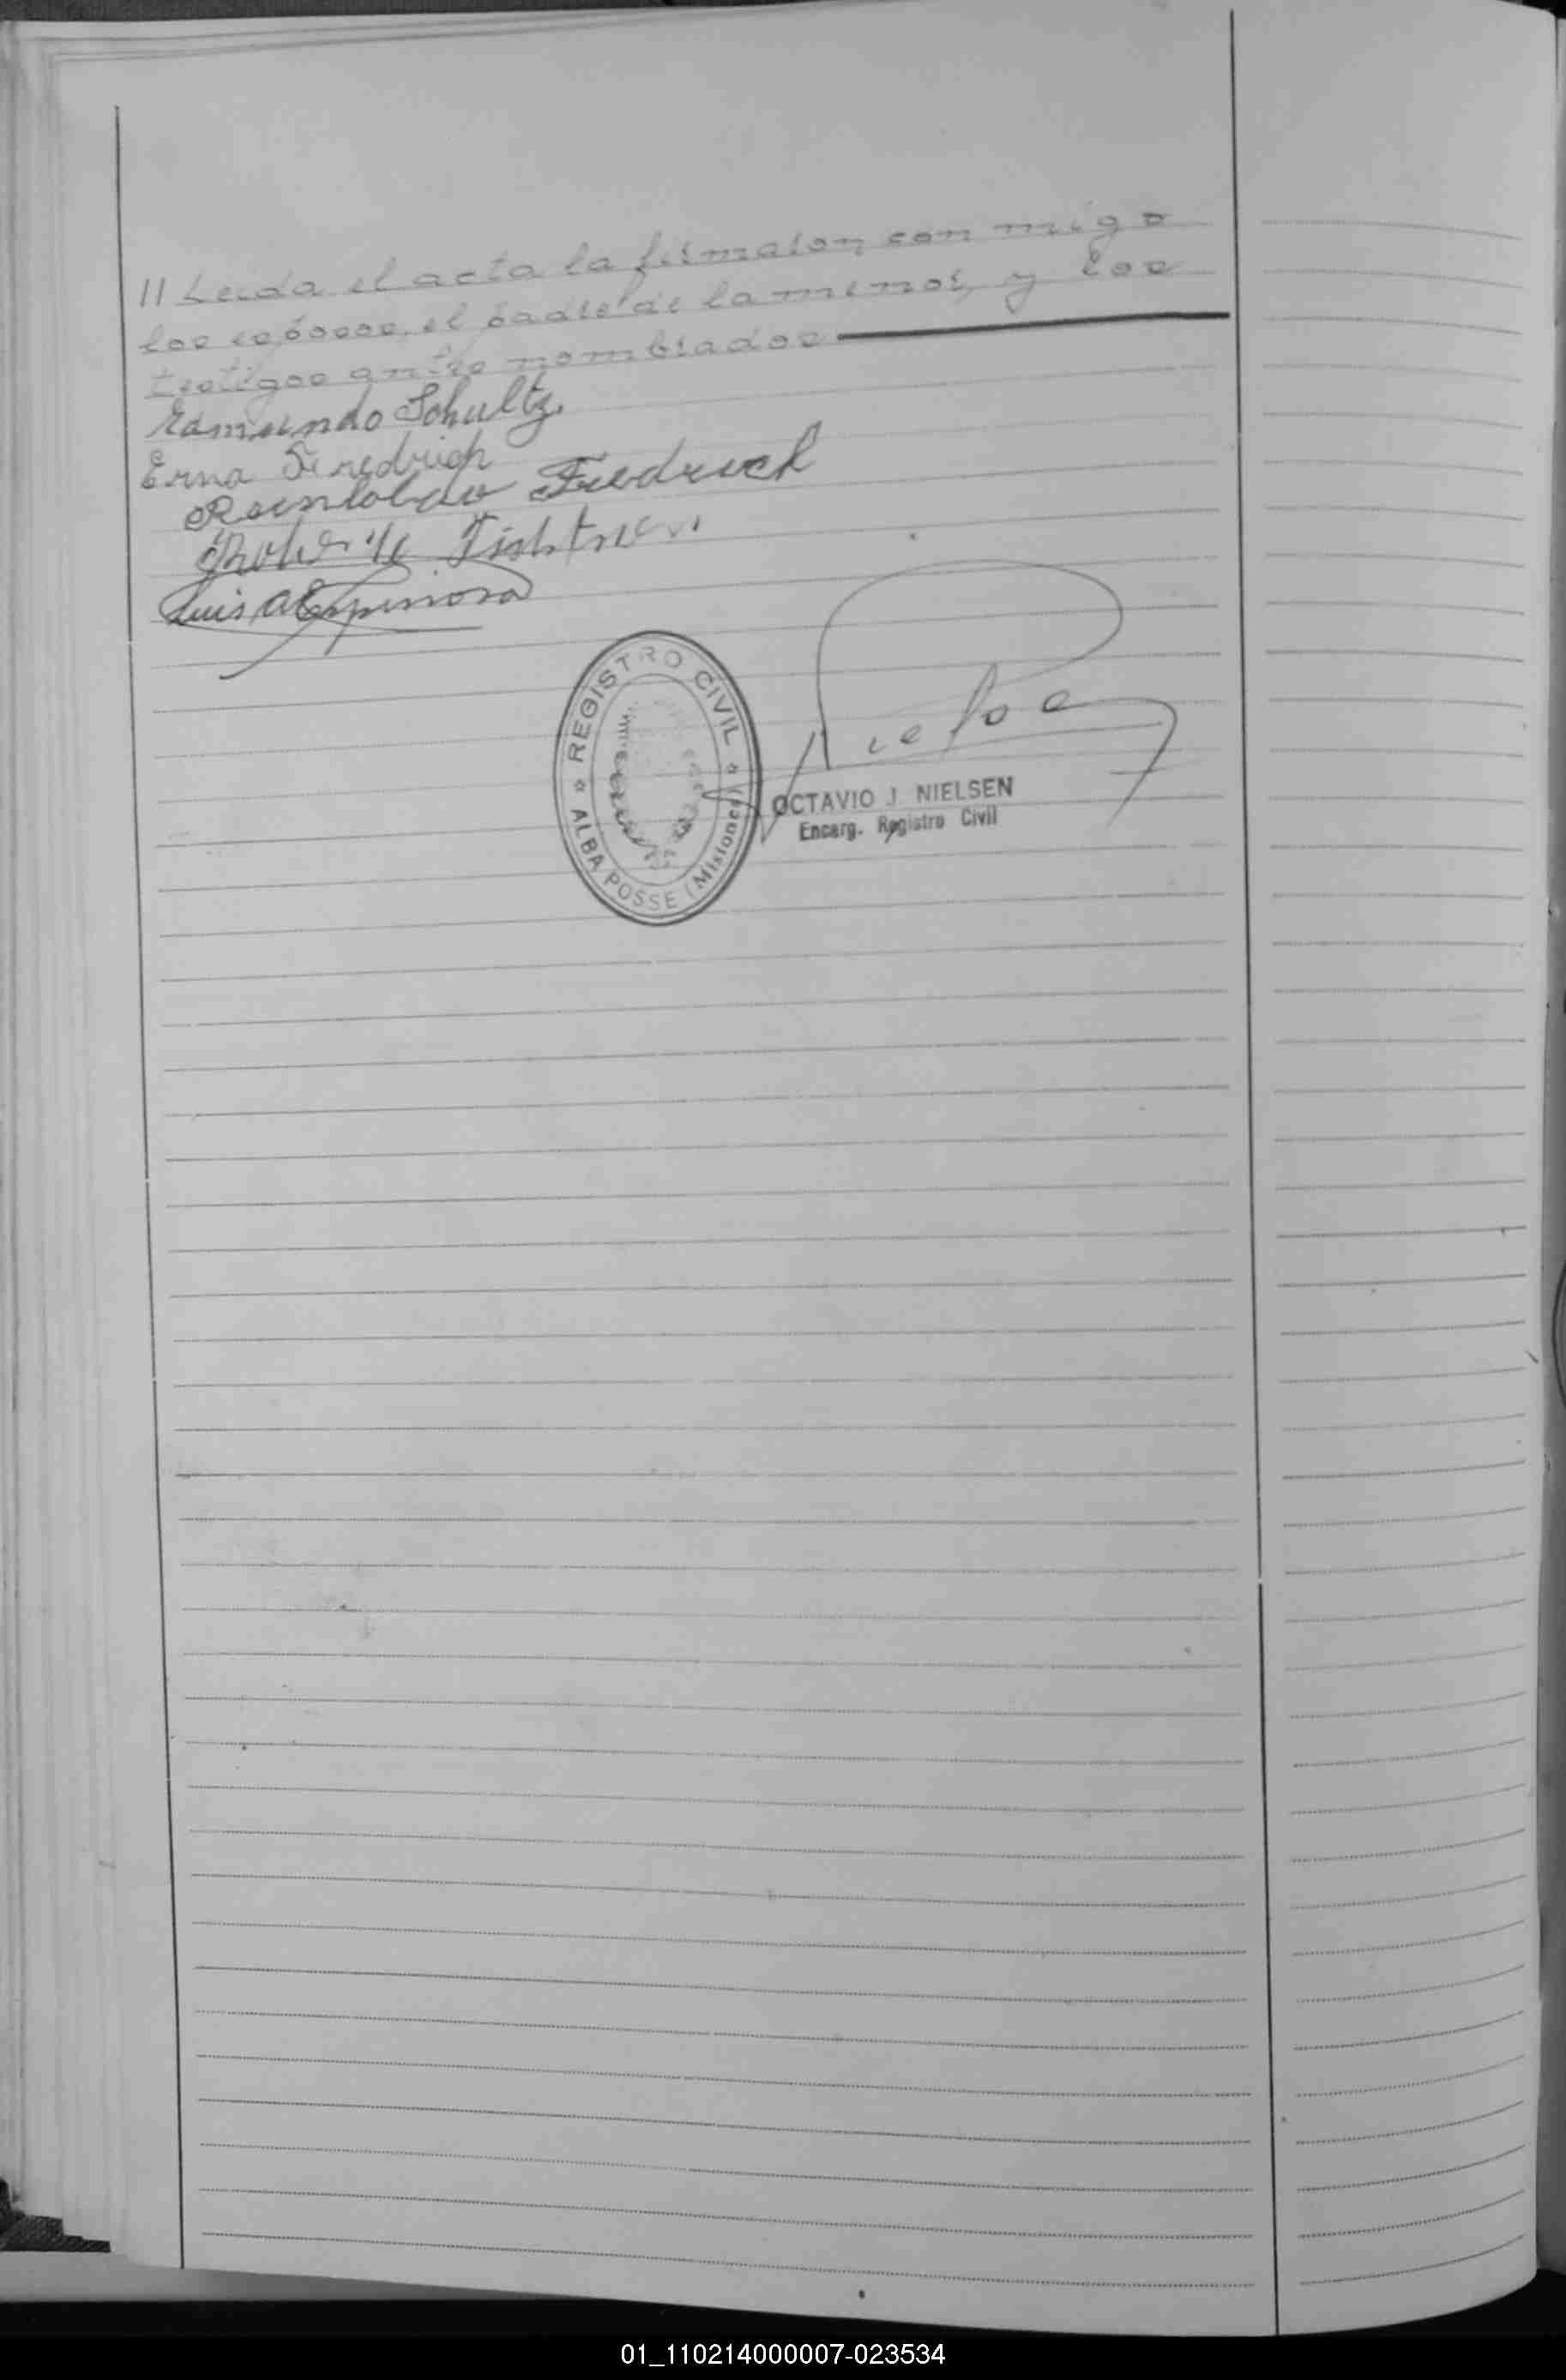 // Leida el acta la firmaron con migo
los esposos, el padre de la menor, y los
testigos antes nombrados
Raimundo Schultz
Erna Friedrich
Reinloldo Friedrich
Luis A Espinosa
REGISTRO CIVIL
ALBA POSSE (Misiones)
OCTAVIO J. NIELSEN
Encarg. Registro Civil
01_110214000007-023534